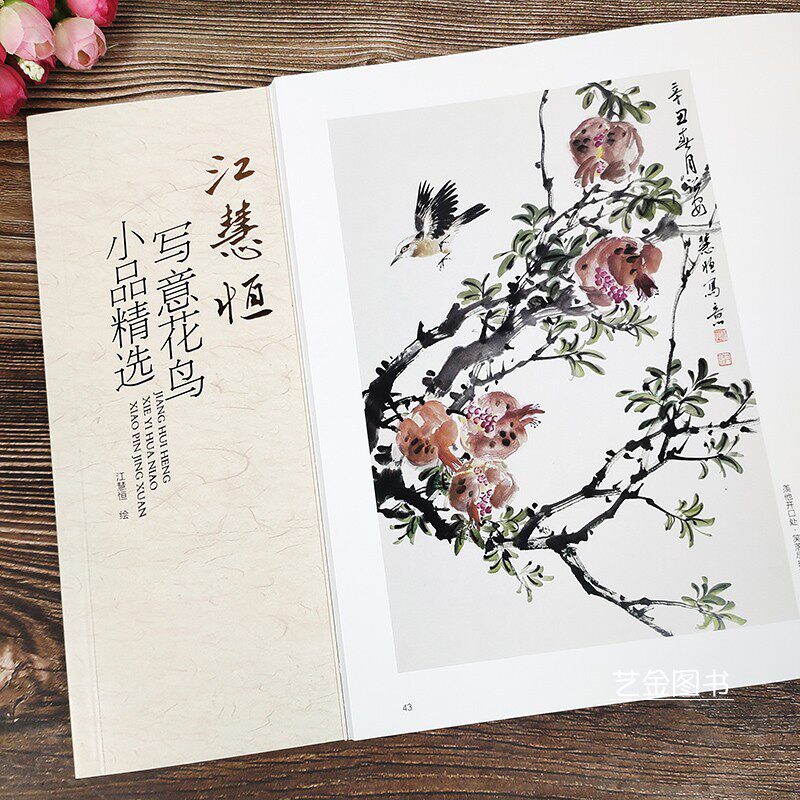 江慧恒
写意花鸟
小品精选
JIANG HUI HENG
XIE YI HUA NIAO
XIAO PIN JING XUAN
江慧恒 绘
辛丑春月
慧恒写意
羡他开口处，笑落
43
艺金图书